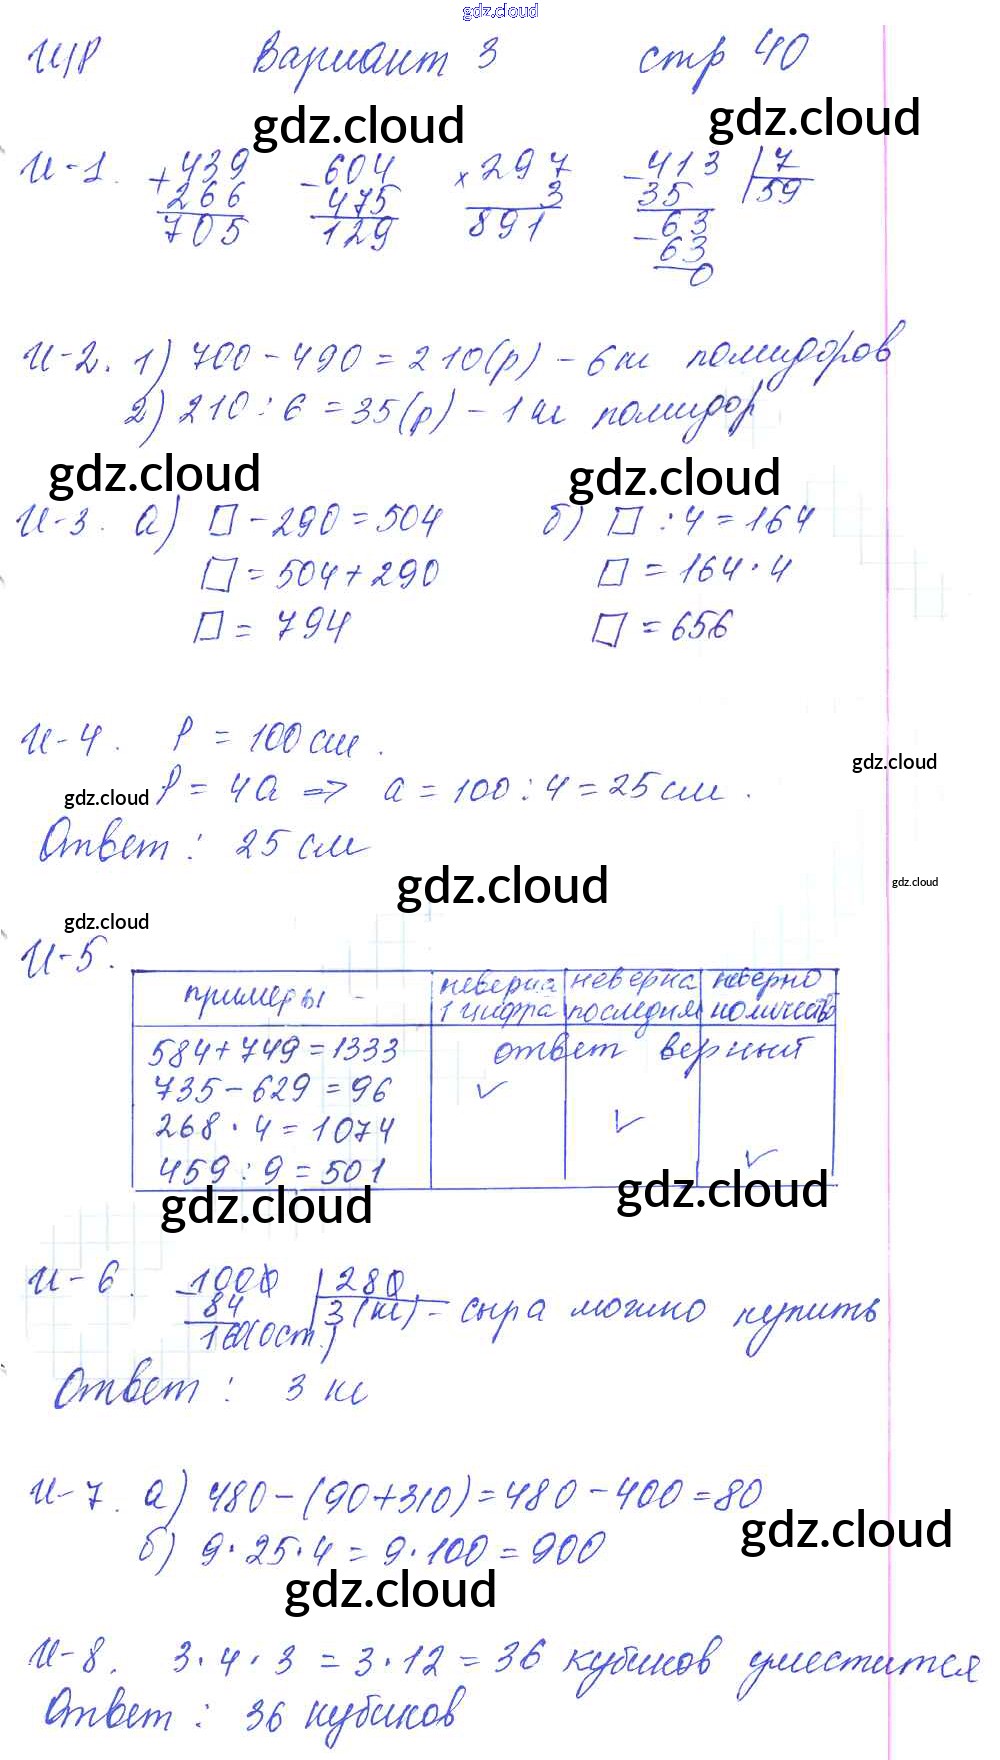 gdz.cloud
И/Р Вариант 3 стр 40
gdz.cloud gdz.cloud
И-1. +439 -604 ×297 -413 |7
266 475 3 35 59
705 129 891 -63
63
0
И-2. 1) 700 - 490 = 210(р) - 6 кг помидоров
2) 210 : 6 = 35(р) - 1 кг помидор
gdz.cloud gdz.cloud
И-3. а) □ - 290 = 504 б) □ : 4 = 164
□ = 504 + 290 □ = 164 · 4
□ = 794 □ = 656
И-4. P = 100 см.
gdz.cloud
gdz.cloud P = 4a => a = 100 : 4 = 25 см.
Ответ: 25 см
gdz.cloud gdz.cloud
gdz.cloud
И-5.
примеры неверна 1 цифра неверна последняя неверно количество
584 + 749 = 1333 ответ верный
735 - 629 = 96 ✓
268 · 4 = 1074 ✓
459 : 9 = 501 ✓
gdz.cloud gdz.cloud
И-6. -1000 |280
84 3 (кг) - сыра можно купить
160(ост.)
Ответ: 3 кг
И-7. а) 480 - (90 + 310) = 480 - 400 = 80
gdz.cloud
б) 9 · 25 · 4 = 9 · 100 = 900
gdz.cloud
И-8. 3 · 4 · 3 = 3 · 12 = 36 кубиков уместится
Ответ: 36 кубиков